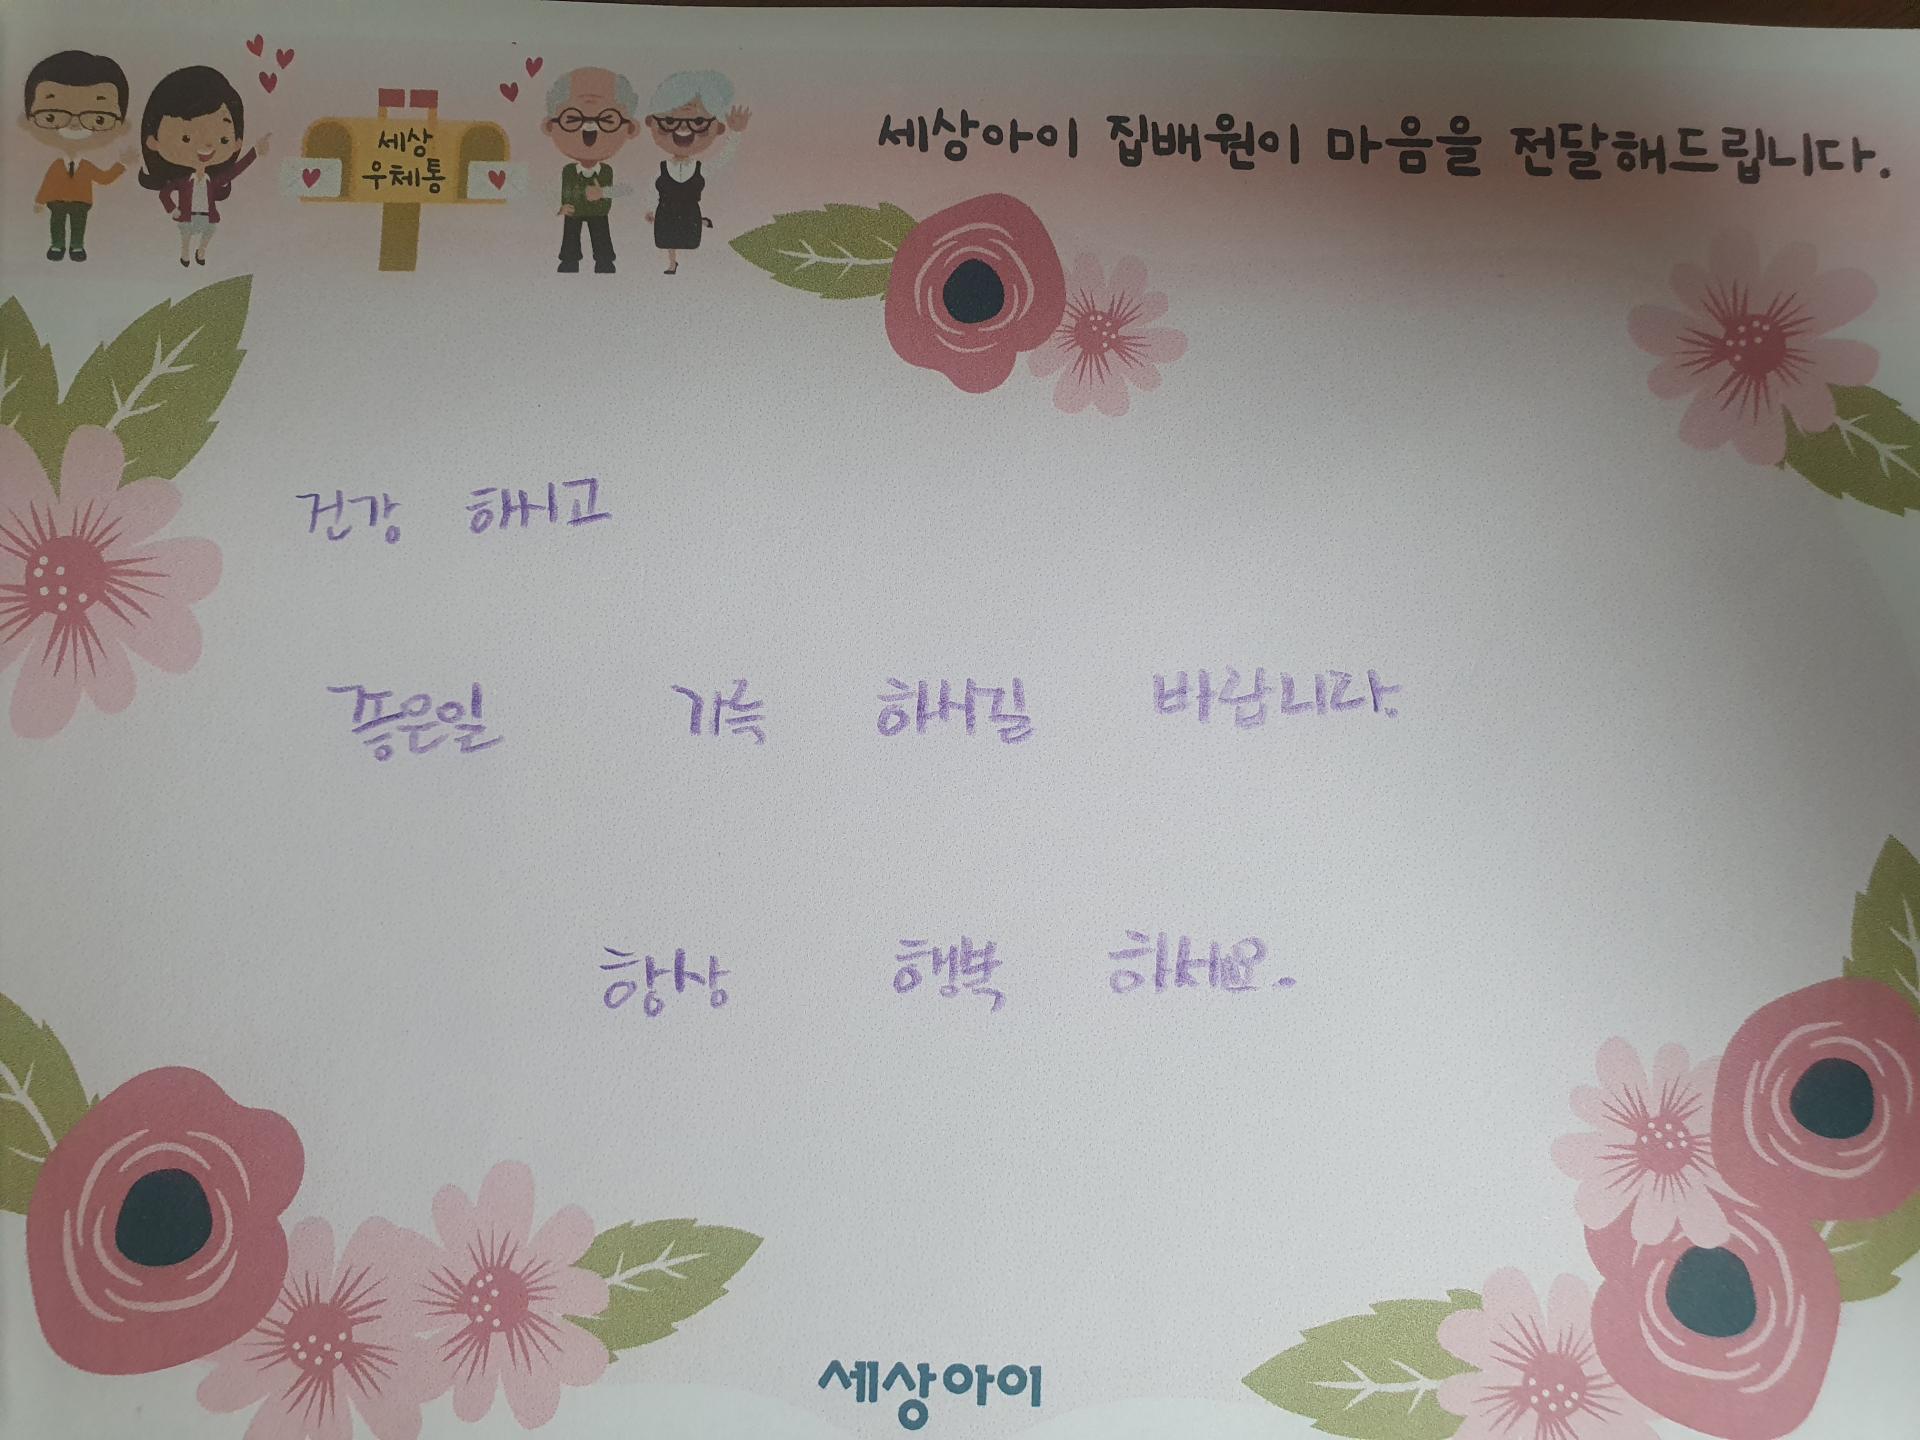 세상
우체통
세상아이 집배원이 마음을 전달해드립니다.
건강 하시고
좋은일 가득 하시길 바랍니다.
항상 행복 하세요.
세상아이